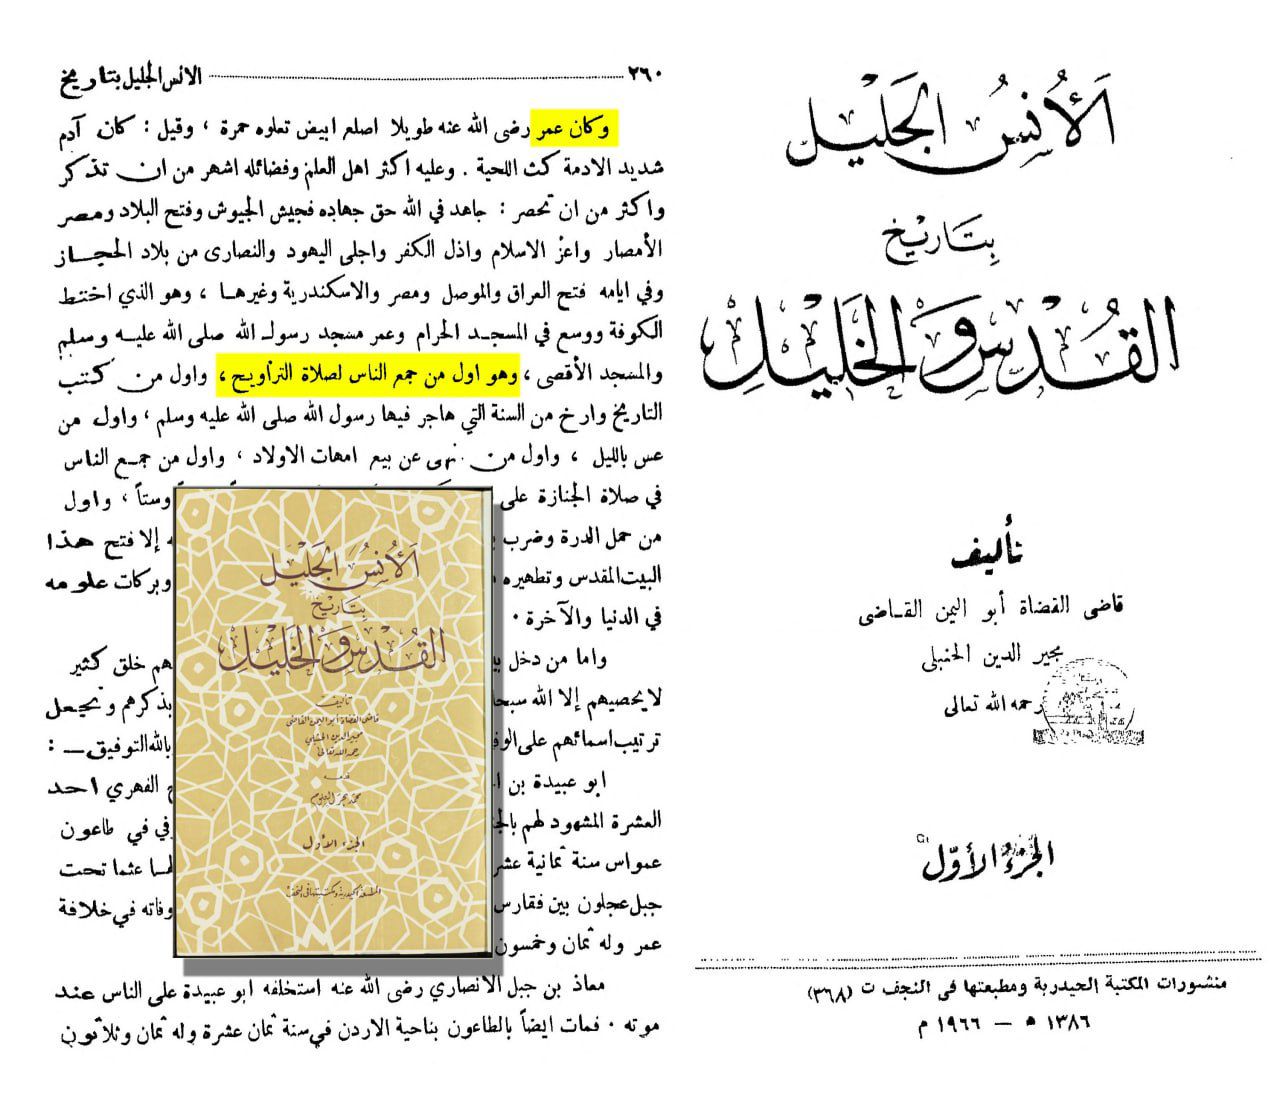 ٢٦٠ الانس الجليل بتاريخ
وكان عمر رضى الله عنه طويلا اصلع ابيض تعلوه حمرة ، وقيل : كان آدم
شديد الادمة كث اللحية . وعليه اكثر اهل العلم وفضائله اشهر من ان تذكر
واكثر من ان تحصر : جاهد في الله حق جهاده فجيش الجيوش وفتح البلاد ومصر
الأمصار واعزّ الاسلام واذل الكفر واجلى اليهود والنصارى من بلاد الحجاز
وفي ايامه فتح العراق والموصل ومصر والاسكندرية وغيرها ، وهو الذي اختط
الكوفة ووسع في المسجد الحرام وعمر مسجد رسول الله صلى الله عليه وسلم
والمسجد الأقصى ، وهو اول من جمع الناس لصلاة التراويح ، واول من كتب
التاريخ وارخ من السنة التي هاجر فيها رسول الله صلى الله عليه وسلم ، واول من
عس بالليل ، واول من نهى عن بيع امهات الاولاد ، واول من جمع الناس
في صلاة الجنازة على وستاً ، واول
من حمل الدرة وضرب إلا فتح هذا
البيت المقدس وتطهيره وبركات علومه
في الدنيا والآخرة .
واما من دخل هم خلق كثير
لا يحصيهم إلا الله بذكرهم ونجعل
ترتيب اسمائهم على بالله التوفيق :
ابو عبيدة بن الفهري احد
العشرة المشهود لهم في طاعون
عمواس سنة ثمانية عثما تحت
جبل عجلون بين وفاته في خلافة
عمر وله ثمان وخمسون
معاذ بن جبل الانصاري رضى الله عنه استخلفه ابو عبيدة على الناس عند
موته . فمات ايضاً بالطاعون بناحية الاردن في سنة ثمان عشرة وله ثمان وثلاثون
الأنس الجليل
بتاريخ
القدس والخليل
تأليف
قاضى القضاة أبو اليمن القاضى
مجير الدين الحنبلي
رحمه الله تعالى
قدمه
محمد بحر العلوم
الجزء الأول
المطبعة الحيدرية ومكتبتها في النجف
الأُنس الجَليل
بِتَاريْخ
القُدْس وَالخَليْل
تأليف
قاضى القضاة أبو اليمن القـاضى
مجير الدين الحنبلى
رحمه الله تعالى
الجزءُ الأوّل
منشورات المكتبة الحيدرية ومطبعتها فى النجف ت (٣٦٨)
١٣٨٦ ه – ١٩٦٦ م